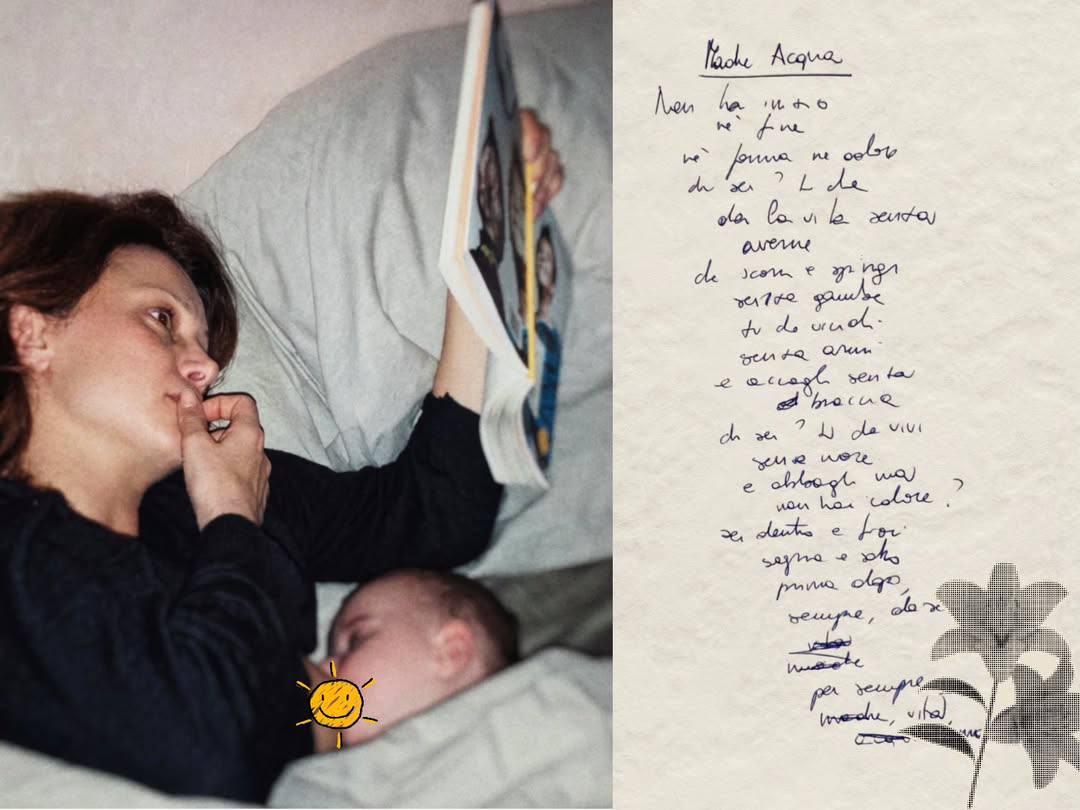 Madre Acqua
Non ha inizio
nè fine
nè forma ne odore
chi sei? Tu che
dai la vita senza
averne
che scorri e spingi
senza gambe
tu che vinci
senza armi
e accogli senza
braccia
chi sei? Tu che vivi
senza
e abbagli ma
non hai colore?
sei dentro e fuori
sopra e sotto
prima dopo,
sempre, da se
madre
per sempre
madre, vita,